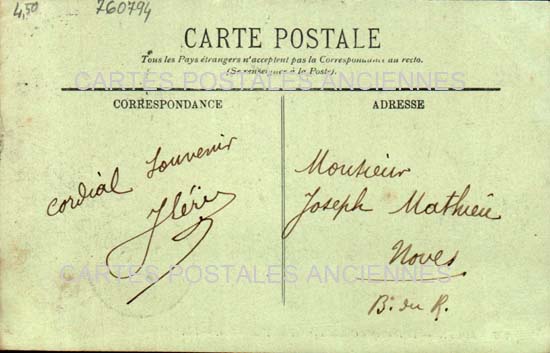 4,50
760794
CARTE POSTALE
Tous les Pays étrangers n'acceptent pas la Correspondance au recto.
(Se renseigner à la Poste).
CARTES POSTALES ANCIENNES
CORRESPONDANCE
ADRESSE
Cordial Souvenir
Monsieur
Joseph Mathieu
Noves
B. du R.
CARTES POSTALES ANCIENNES